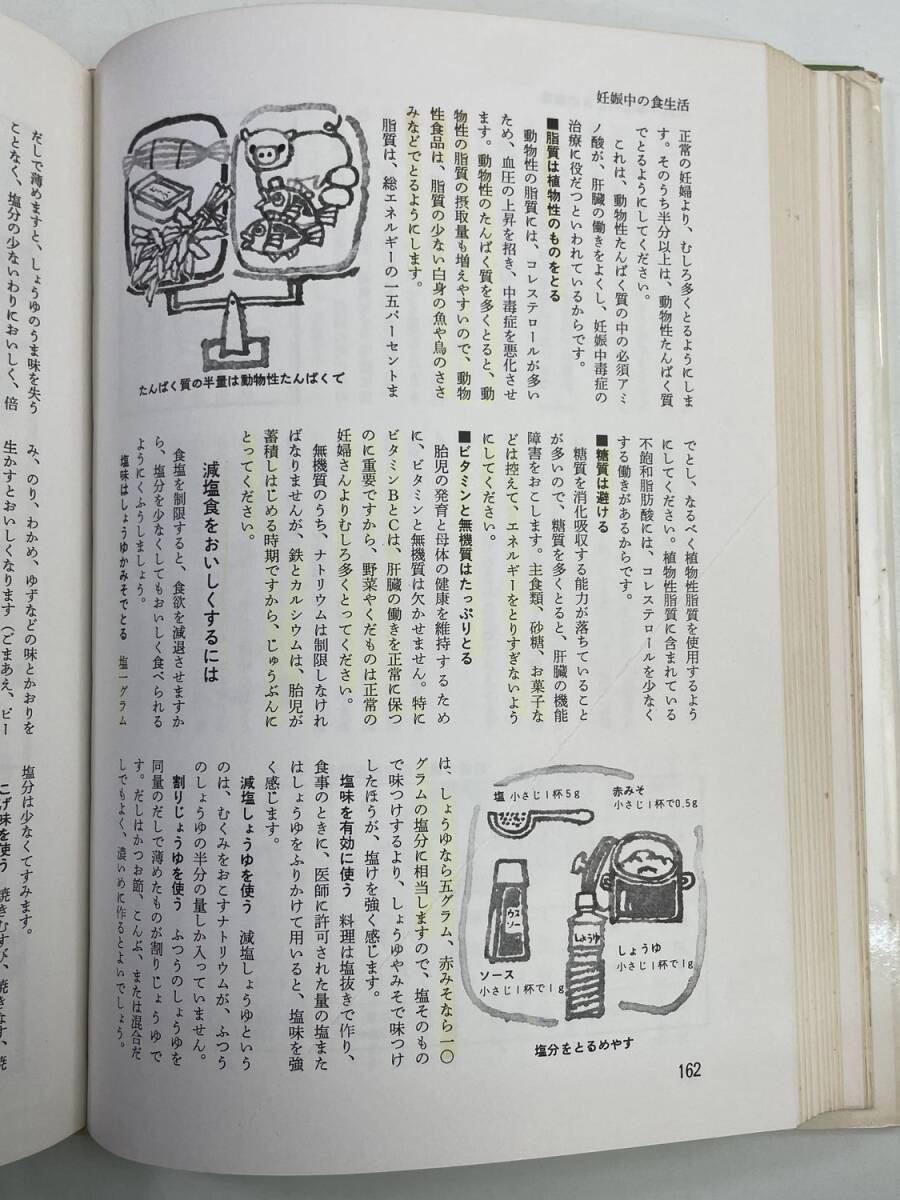 妊娠中の食生活
正常の妊婦より、むしろ多くとるようにしま
す。そのうち半分以上は、動物性たんぱく質
でとるようにしてください。
これは、動物性たんぱく質の中の必須アミ
ノ酸が、肝臓の働きをよくし、妊娠中毒症の
治療に役だつといわれているからです。
■脂質は植物性のものをとる
動物性の脂質には、コレステロールが多い
ため、血圧の上昇を招き、中毒症を悪化させ
ます。動物性のたんぱく質を多くとると、動
物性の脂質の摂取量も増えやすいので、動物
性食品は、脂質の少ない白身の魚や鳥のささ
みなどでとるようにします。
脂質は、総エネルギーの一五パーセントま
たんぱく質の半量は動物性たんぱくで
でとし、なるべく植物性脂質を使用するよう
にしてください。植物性脂質に含まれている
不飽和脂肪酸には、コレステロールを少なく
する働きがあるからです。
■糖質は避ける
糖質を消化吸収する能力が落ちていること
が多いので、糖質を多くとると、肝臓の機能
障害をおこします。主食類、砂糖、お菓子な
どは控えて、エネルギーをとりすぎないよう
にしてください。
■ビタミンと無機質はたっぷりとる
胎児の発育と母体の健康を維持するため
に、ビタミンと無機質は欠かせません。特に
ビタミンBとCは、肝臓の働きを正常に保つ
のに重要ですから、野菜やくだものは正常の
妊婦さんよりむしろ多くとってください。
無機質のうち、ナトリウムは制限しなけれ
ばなりませんが、鉄とカルシウムは、胎児が
蓄積しはじめる時期ですから、じゅうぶんに
とってください。
減塩食をおいしくするには
食塩を制限すると、食欲を減退させますか
ら、塩分を少なくしてもおいしく食べられる
ようにくふうしましょう。
塩味はしょうゆかみそでとる 塩一グラム
塩 小さじ1杯5g
赤みそ
小さじ1杯で0.5g
ウスソー
しょうゆ
しょうゆ
小さじ1杯で1g
ソース
小さじ1杯で1g
塩分をとるめやす
は、しょうゆなら五グラム、赤みそなら一〇
グラムの塩分に相当しますので、塩そのもの
で味つけするより、しょうゆやみそで味つけ
したほうが、塩けを強く感じます。
塩味を有効に使う 料理は塩抜きで作り、
食事のときに、医師に許可された量の塩また
はしょうゆをふりかけて用いると、塩味を強
く感じます。
減塩しょうゆを使う 減塩しょうゆという
のは、むくみをおこすナトリウムが、ふつう
のしょうゆの半分の量しか入っていません。
割りじょうゆを使う ふつうのしょうゆを
同量のだしで薄めたものが割りじょうゆで
す。だしはかつお節、こんぶ、または混合だ
しでもよく、濃いめに作るとよいでしょう。
162
だしで薄めますと、しょうゆのうま味を失う
ことなく、塩分の少ないわりにおいしく、倍
み、のり、わかめ、ゆずなどの味とかおりを
生かすとおいしくなります（ごまあえ、ピー
塩分は少なくてすみます。
こげ味を使う 焼きむすび、焼きなす、焼